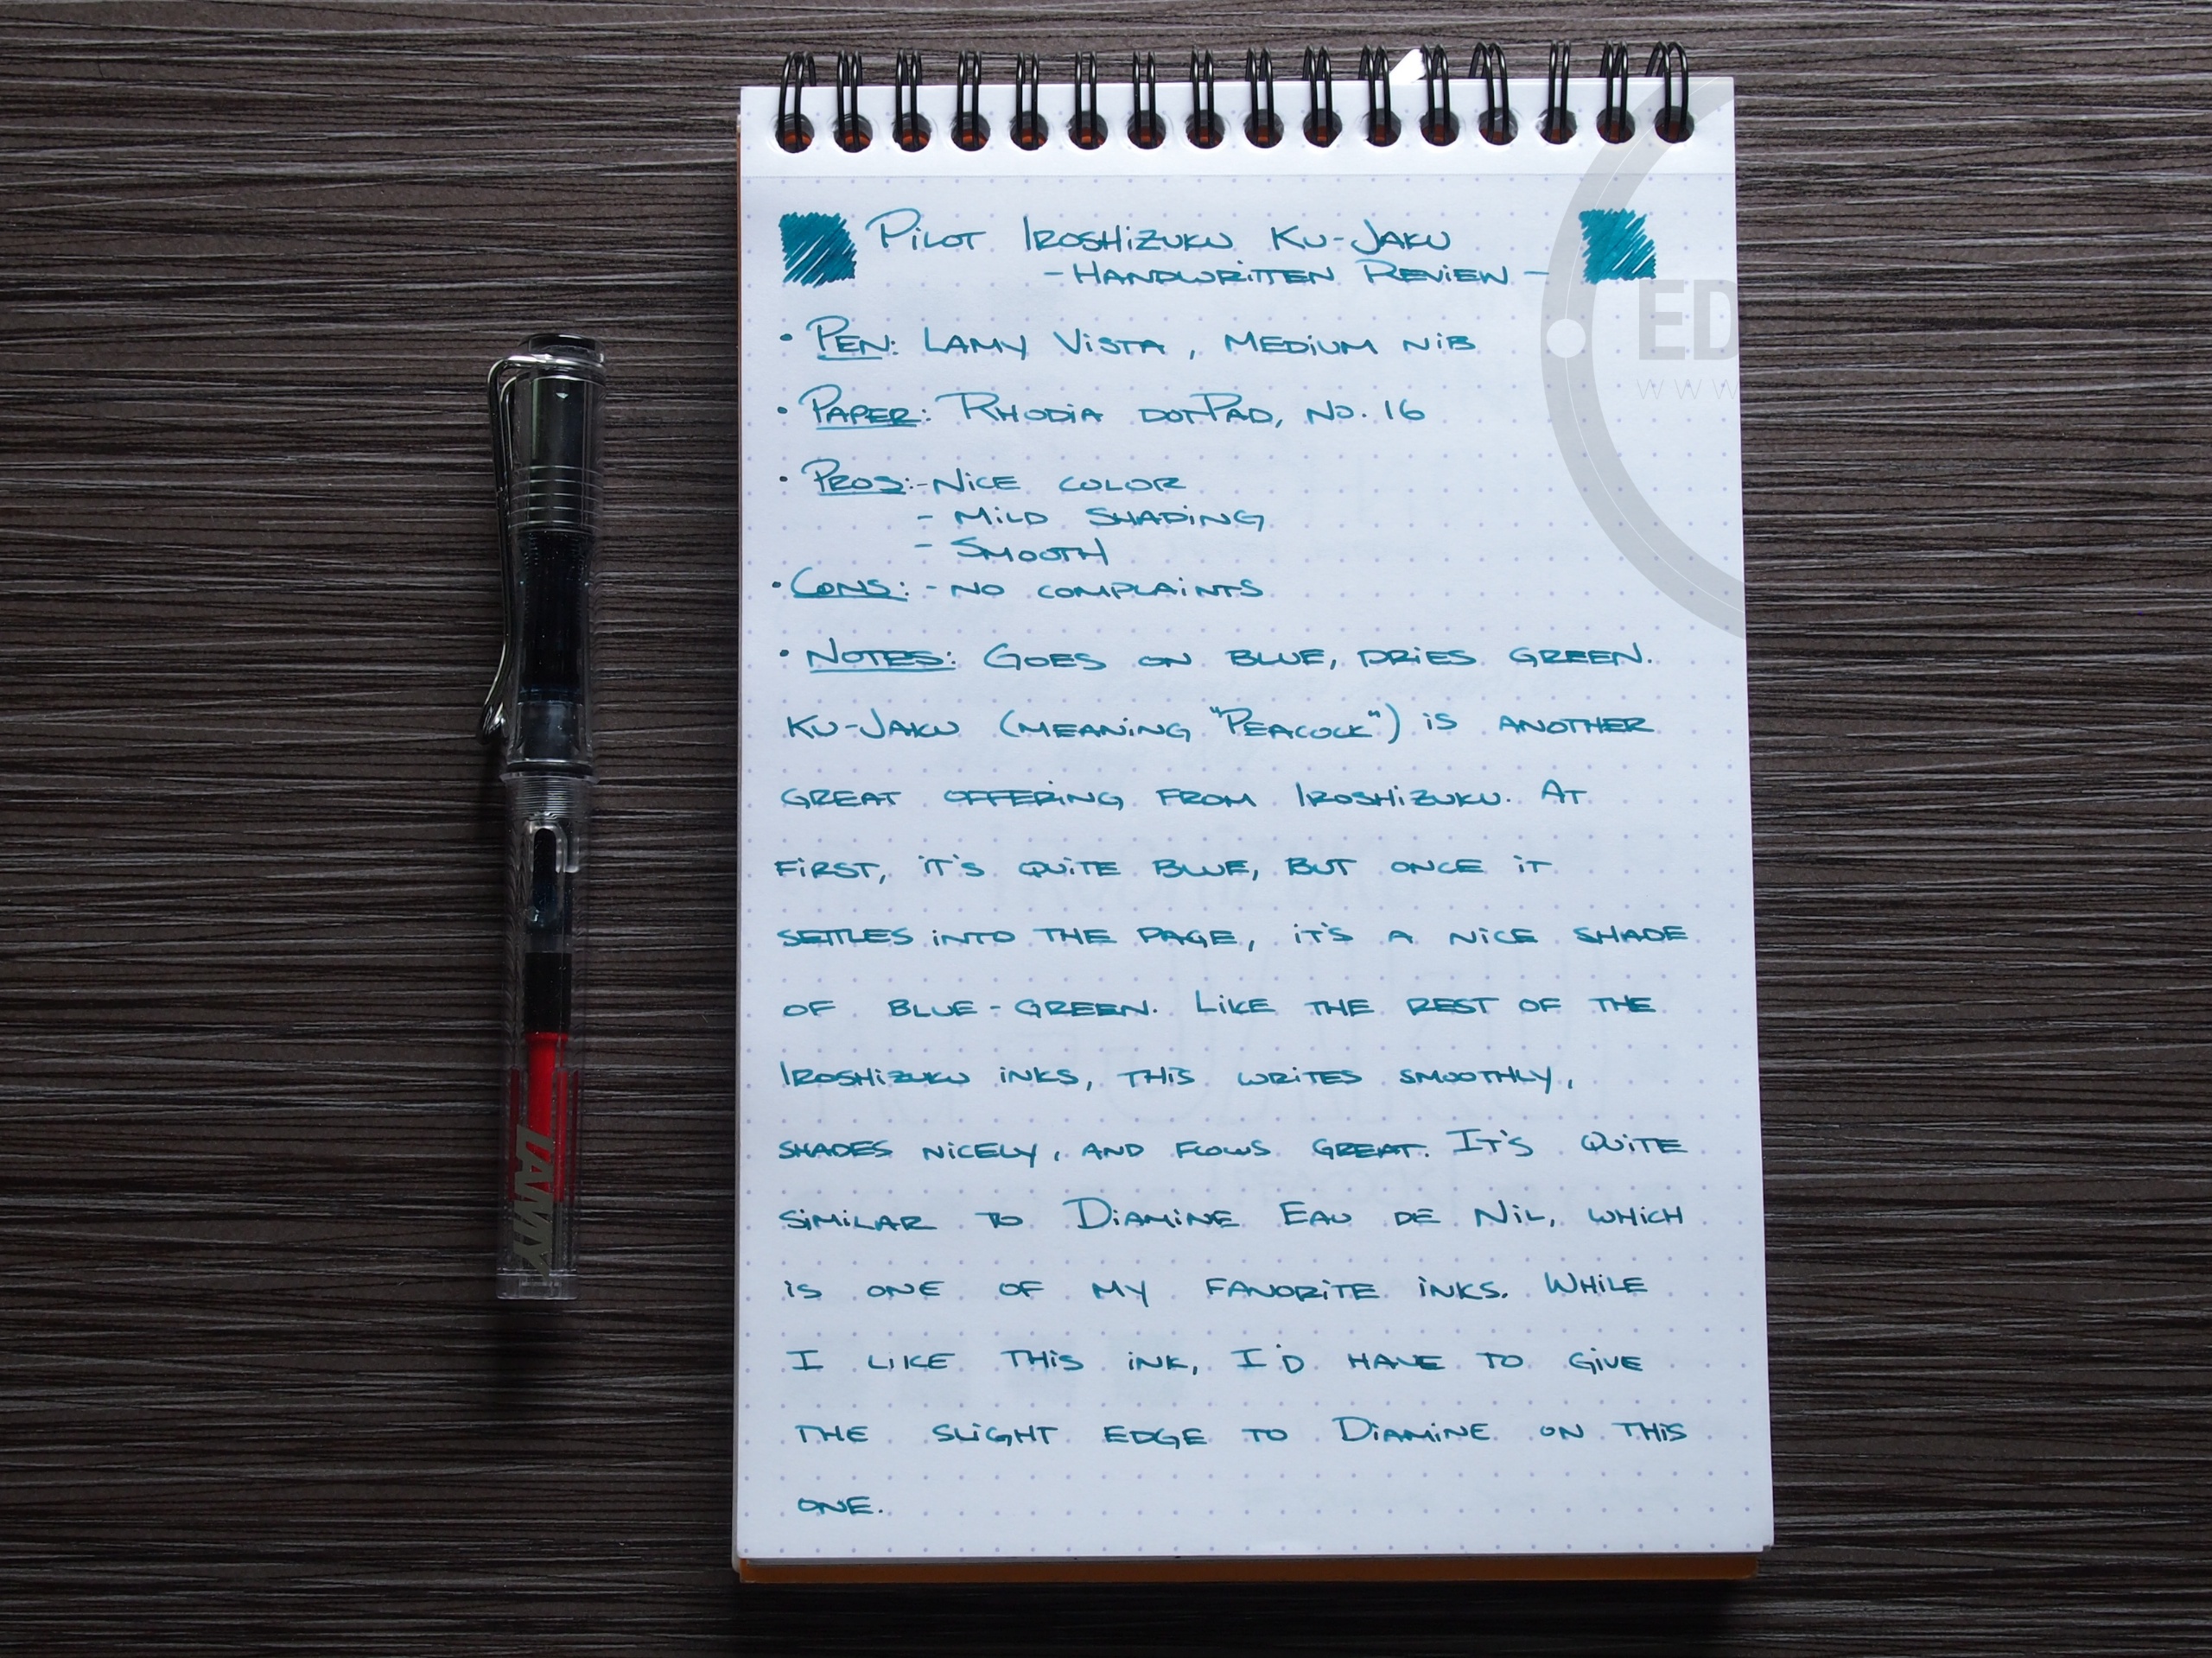 Pilot Iroshizuku Ku-Jaku
- Handwritten Review -
• Pen: Lamy Vista, Medium nib
• Paper: Rhodia dotPad, No. 16
• Pros: - Nice color
- Mild shading
- Smooth
• Cons: - no complaints
• Notes: Goes on blue, dries green.
Ku-Jaku (meaning "Peacock") is another
great offering from Iroshizuku. At
first, it's quite blue, but once it
settles into the page, it's a nice shade
of blue-green. Like the rest of the
Iroshizuku inks, this writes smoothly,
shades nicely, and flows great. It's quite
similar to Diamine Eau de Nil, which
is one of my favorite inks. While
I like this ink, I'd have to give
the slight edge to Diamine on this
one.
LAMY
ED
WWW